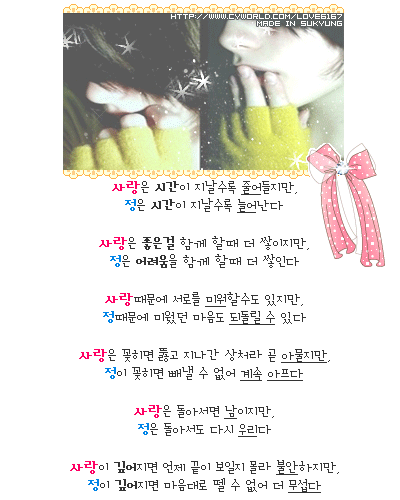 HTTP://WWW.CYWORLD.COM/LOVE6167
MADE IN SUKYUNG
사랑은 시간이 지날수록 줄어들지만,
정은 시간이 지날수록 늘어난다
사랑은 좋은걸 함께 할때 더 쌓이지만,
정은 어려움을 함께 할때 더 쌓인다
사랑때문에 서로를 미워할수도 있지만,
정때문에 미웠던 마음도 되돌릴 수 있다
사랑은 꽂히면 뚫고 지나간 상처라 곧 아물지만,
정이 꽂히면 빼낼 수 없어 계속 아프다
사랑은 돌아서면 남이지만,
정은 돌아서도 다시 우리다
사랑이 깊어지면 언제 끝이 보일지 몰라 불안하지만,
정이 깊어지면 마음대로 뗄 수 없어 더 무섭다